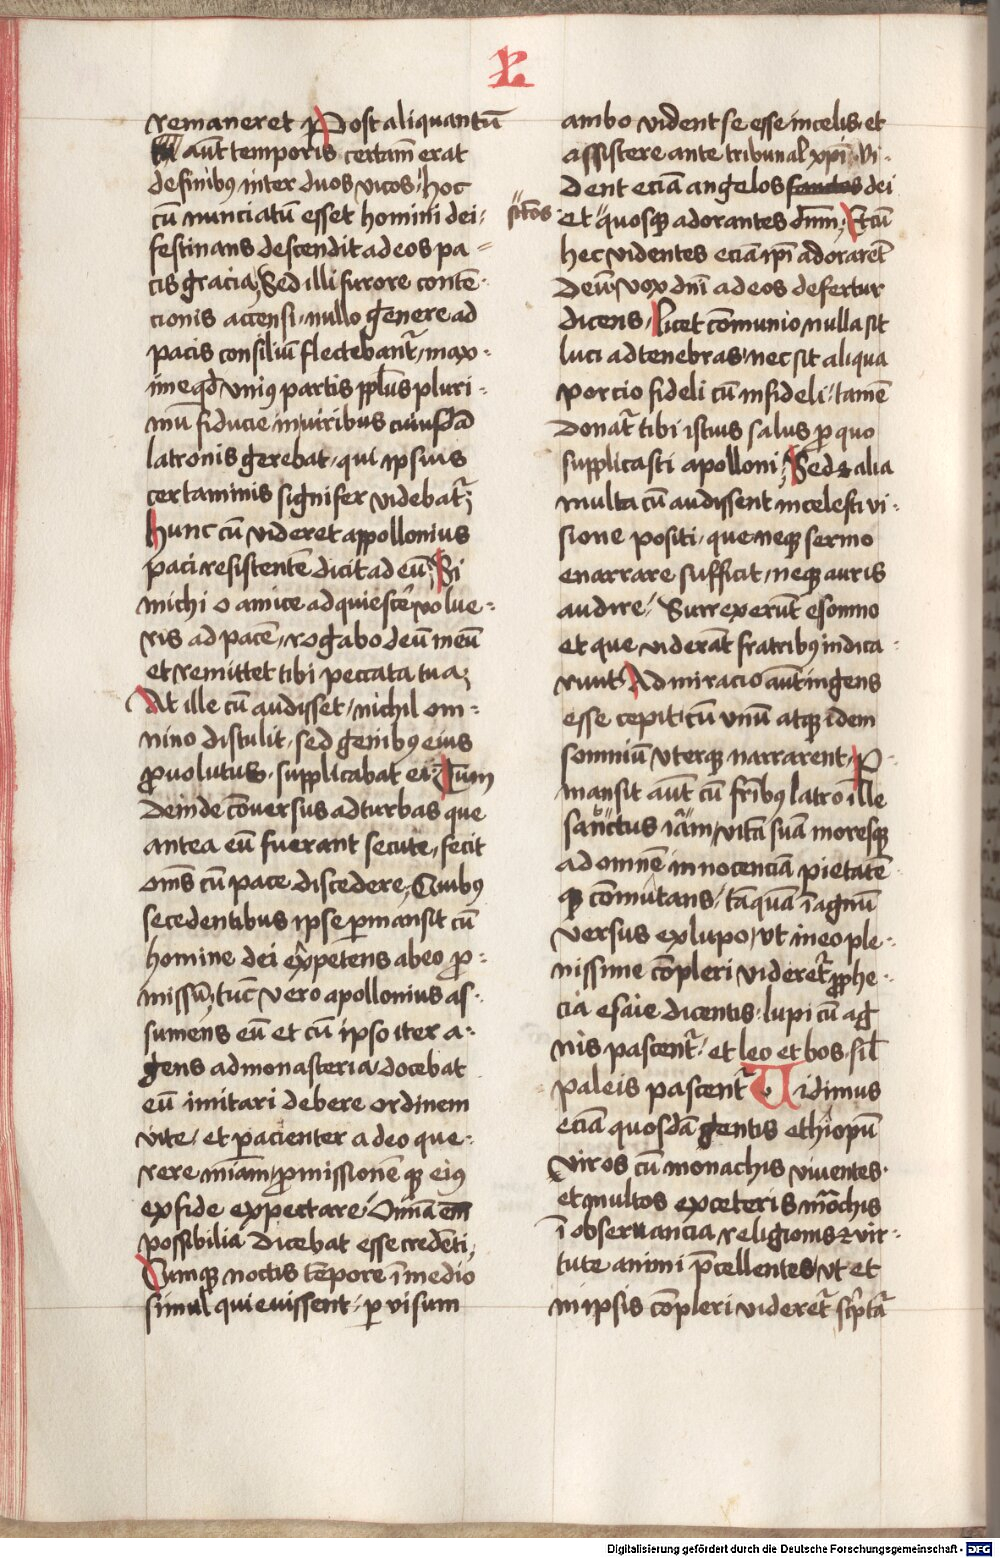 remaneret Post aliquantū
aūt temporis certam̄ erat
de finibꝰ inter duos vicos / hoc
cū nunciatū esset homini dei /
festinans descendit ad eos pa =
cis gracia / Sed illi furore conte =
cionis accensi / nullo genere ad
pacis consiliū flectebant᷑ / max =
ime qd̄ vniꝰ partis ppl̄us pluri =
mū fiducie in viribus cuiusdā
latronis gerebat / qui ipsius
certaminis signifer videbat᷑ ;
Hunc cū videret appollonius
paci resistentē dicit ad eū / Si
michi o amice adquiescē volue =
ris ad pacē / rogabo deū meū
et remittet tibi peccata tua ;
At ille cū audisset / nichil om =
nino distulit / sed genibꝰ eius
ꝓuolutus / supplicabat ei / Tum
deinde cōuersus ad turbas que
antea eū fuerant secute / fecit
om̄s cū pace discedere / Quibꝰ
secedentibus ipse ꝑmansit cū
homine dei exꝑetens ab eo ꝓ =
missū / tūc vero apollonius as =
sumens eū et cū ipso iter a =
gens ad monasteria / docebat
eū imitari debere ordinem
vite / et pacienter a deo que =
rere mīam / ꝓmissionē qꝫ eiꝰ
ex fide expectare / Omnia em̄
possibilia dicebat esse credēti /
Cumqꝫ noctis tēpore ī medio
simul quieuissent / ꝑ visum
ambo vident se esse in celis et
assistere ante tribunal xp̄i / Vi =
dent eciā angelos sanctos dei
sāctos
et quosqꝫ adorantes dn̄m / Et cū
hec videntes eciā ip̄i adorarēt
deū / vox dn̄i ad eos defertur
dicens / licet cōmunio nulla sit
luci ad tenebras / nec sit aliqua
porcio fideli cū infideli / tamē
donat᷑ tibi istius salus pro quo
supplicasti apolloni ; Sed ⁊ alia
multa cū audissent in celesti vi =
sione positi / que neqꝫ sermo
enarrare sufficit / neqꝫ auris
audire / Surrexerūt e somno
et que viderāt fratribꝰ indica =
runt Admiracio aūt ingens
esse cepit / cū vnū atqꝫ idem
somniū vterqꝫ narrarent / P =
mansit aūt cū fr̄ibꝰ latro ille
sanctus iām / vitā suā moresqꝫ
ad omnē innocenciā pietatē
qꝫ cōmutans / tāquā ī agnū
versus ex lupo / vt in eo ple =
nissime cōpleri videret᷑ ꝓphe =
cia esaie dicentis / lupi cū ag
nis pascent᷑ / et leo et bos sil̄
paleis pascent᷑ Uidimus
eciā quosdā gentis ethiopū
viros cū monachis viuentes
et multos ex ceteris mōchis
ī obseruancia religionis ⁊ vir =
tute animi p̄cellentes / vt et
in ipsis cōpleri videret᷑ sc̄ptā
Digitalisierung gefördert durch die Deutsche Forschungsgemeinschaft - DFG